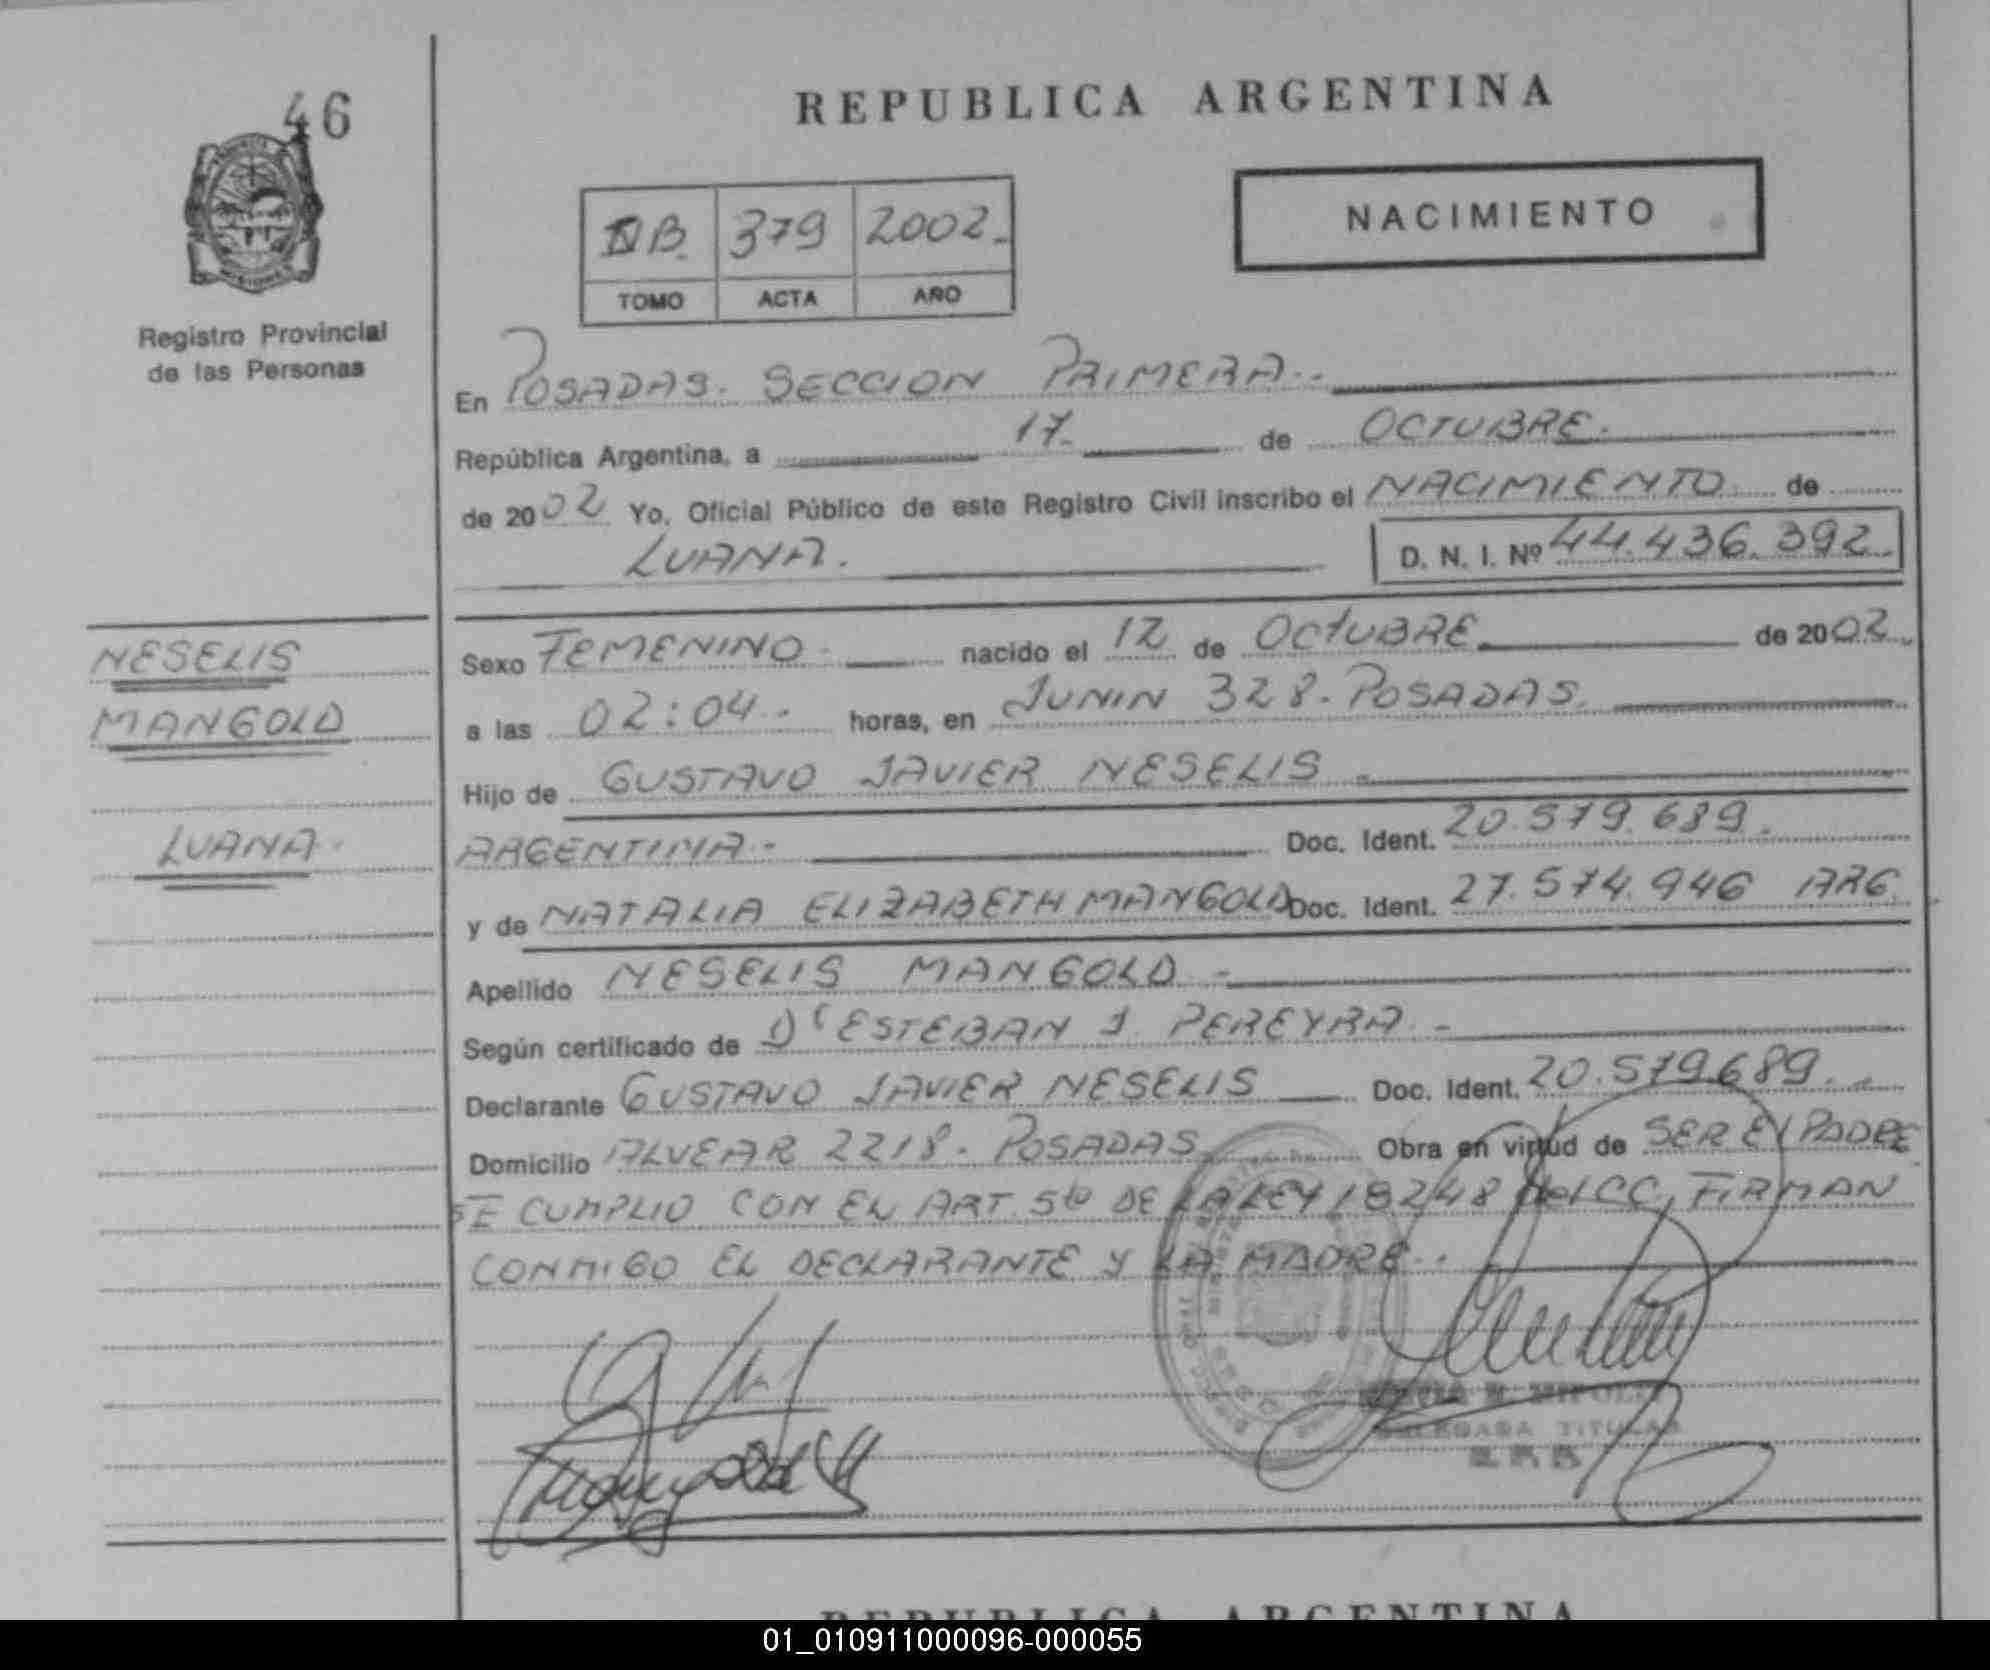 46
REPUBLICA ARGENTINA
NACIMIENTO
B. 379 2002.
TOMO ACTA AÑO
Registro Provincial
de las Personas
En POSADAS. SECCION PRIMERA.
República Argentina, a 17. de OCTUBRE.
de 2002 Yo, Oficial Público de este Registro Civil inscribo el NACIMIENTO de
LUANA. D. N. I. Nº 44.436.392.
NESELIS
MANGOLD
LUANA.
Sexo FEMENINO. nacido el 12 de OCTUBRE de 2002.
a las 02:04. horas, en JUNIN 328. POSADAS.
Hijo de GUSTAVO JAVIER NESELIS.
ARGENTINA.- Doc. Ident. 20.579.689.
y de NATALIA ELIZABETH MANGOLD Doc. Ident. 27.574.946 ARG.
Apellido NESELIS MANGOLD.-
Según certificado de Dr ESTEBAN J. PEREYRA.-
Declarante GUSTAVO JAVIER NESELIS Doc. Ident. 20.579689.
Domicilio ALVEAR 2218. POSADAS. Obra en virtud de SER EL PADRE.
SE CUMPLIO CON EL ART. 5to DE LA LEY 18248 del CC, FIRMAN
CONMIGO EL DECLARANTE Y LA MADRE..
DELEGADA TITULAR
REPUBLICA ARGENTINA
01_010911000096-000055